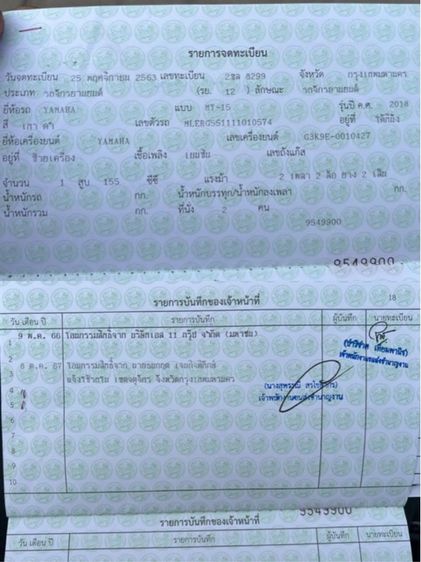 รายการจดทะเบียน
วันจดทะเบียน 25 พฤศจิกายน 2563 เลขทะเบียน 8299 จังหวัด กรุงเทพมหานคร
ประเภท รถจักรยานยนต์ (รย. 12 ) ลักษณะ รถจักรยานยนต์
ยี่ห้อรถ YAMAHA แบบ MT-15 รุ่นปี ค.ศ. 2018
สี เทา ดำ เลขตัวรถ MLERG551111010574 อยู่ที่
ยี่ห้อเครื่องยนต์ YAMAHA เลขเครื่องยนต์ G3K9E-0010427
อยู่ที่ ซ้ายเครื่อง เชื้อเพลิง เบนซิน เลขถังแก๊ส
จำนวน 1 สูบ 155 ซีซี แรงม้า 2 เพลา 2 ล้อ ยาง 2 เส้น
น้ำหนักรถ กก. น้ำหนักบรรทุก/น้ำหนักลงเพลา กก.
น้ำหนักรวม กก. ที่นั่ง 2 คน
9549900
9549900
18
รายการบันทึกของเจ้าหน้าที่
วัน เดือน ปี รายการบันทึก ผู้บันทึก นายทะเบียน
9 พ.ค. 66 โอนกรรมสิทธิ์จาก บริษัทเอส 11 กรุ๊ป จำกัด (มหาชน)
6 ต.ค. 67 โอนกรรมสิทธิ์จาก
เขตจตุจักร จังหวัดกรุงเทพมหานคร
เจ้าพนักงานขนส่งชำนาญงาน
เจ้าพนักงานขนส่งชำนาญงาน
4
5
7
8
9
10
9549900
รายการบันทึกของเจ้าหน้าที่
วัน เดือน ปี รายการบันทึก ผู้บันทึก นายทะเบียน